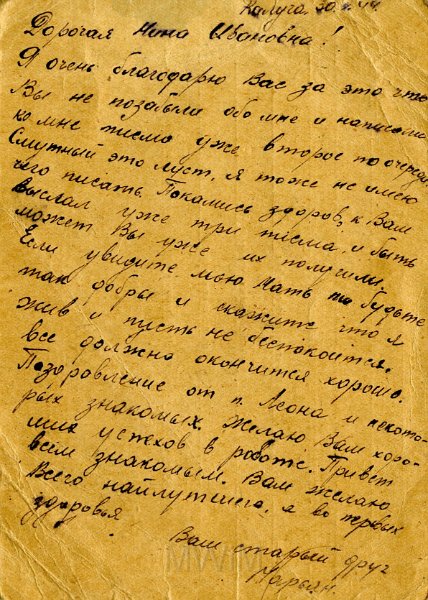 Калуга 30
Дорогая Нина Ивановна!
Я очень благодарю Вас за это что
Вы не позабыли обо мне и написали
ко мне писмо уже второе по очереди
Смутный это я тоже не имею
чего писать. Покамись здоров, к Вам
выслал уже три писма, и быть
может Вы уже их получили.
Если увидите мою мать то будьте
так добры и скажите что я
жив и пусть не беспокоится,
все должно окончится хорошо.
Поздравление от п. Леона и некото-
рых знакомых. Желаю Вам хоро-
ших успехов в роботе. Привет
всем знакомым. Вам желаю
Всего найлутшего, а во первых
здоровья
Ваш старый друг
Марьян.